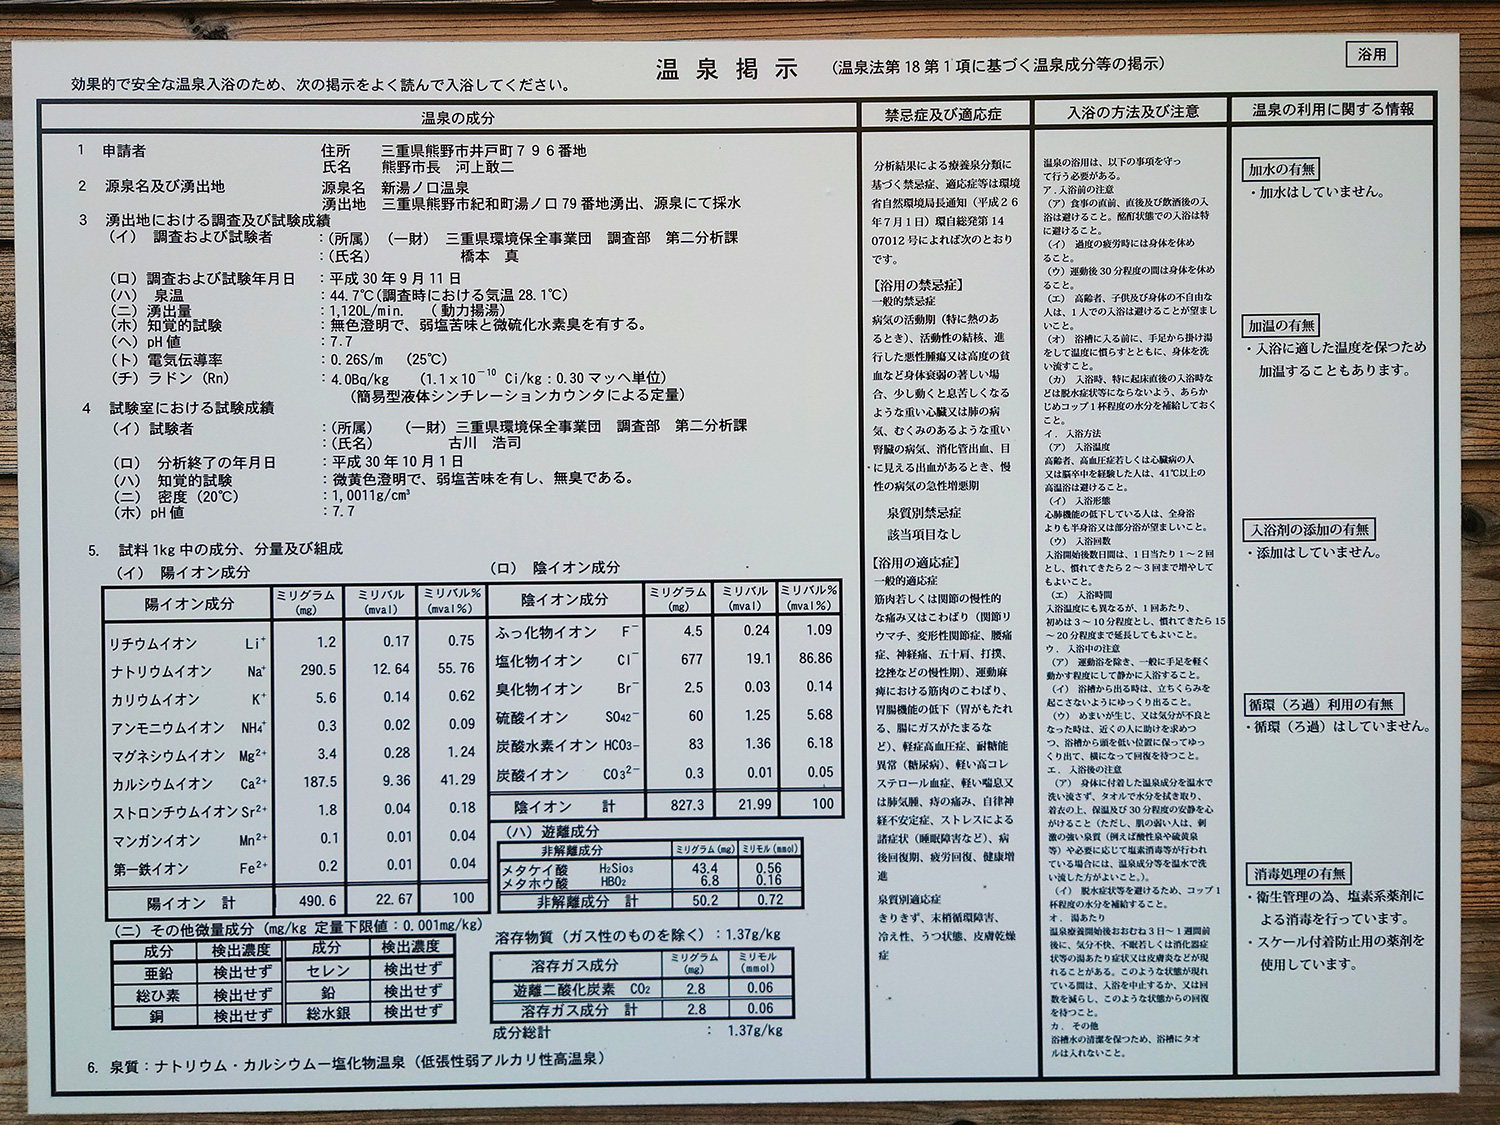 温泉掲示 (温泉法第18第1項に基づく温泉成分等の掲示)
浴用
効果的で安全な温泉入浴のため、次の掲示をよく読んで入浴してください。
温泉の成分
1 申請者 住所 三重県熊野市井戸町796番地
氏名 熊野市長 河上敢二
2 源泉名及び湧出地 源泉名 新湯ノ口温泉
湧出地 三重県熊野市紀和町湯ノ口79番地湧出、源泉にて採水
3 湧出地における調査及び試験成績
(イ) 調査および試験者 :(所属) (一財) 三重県環境保全事業団 調査部 第二分析課
:(氏名) 橋本 真
(ロ)調査および試験年月日 :平成30年9月11日
(ハ) 泉温 :44.7℃(調査時における気温28.1℃)
(ニ)湧出量 :1,120L/min. (動力揚湯)
(ホ)知覚的試験 :無色澄明で、弱塩苦味と微硫化水素臭を有する。
(ヘ)pH値 :7.7
(ト)電気伝導率 :0.26S/m (25℃)
(チ)ラドン(Rn) :4.0Bq/kg (1.1x10⁻¹⁰ Ci/kg:0.30マッヘ単位)
(簡易型液体シンチレーションカウンタによる定量)
4 試験室における試験成績
(イ)試験者 :(所属) (一財)三重県環境保全事業団 調査部 第二分析課
:(氏名) 古川 浩司
(ロ) 分析終了の年月日 :平成30年10月1日
(ハ) 知覚的試験 :微黄色澄明で、弱塩苦味を有し、無臭である。
(ニ) 密度(20℃) :1,0011g/cm³
(ホ)pH値 :7.7
5. 試料1kg中の成分、分量及び組成
(イ) 陽イオン成分
陽イオン成分 ミリグラム(mg) ミリバル(mval) ミリバル%(mval%)
リチウムイオン Li⁺ 1.2 0.17 0.75
ナトリウムイオン Na⁺ 290.5 12.64 55.76
カリウムイオン K⁺ 5.6 0.14 0.62
アンモニウムイオン NH₄⁺ 0.3 0.02 0.09
マグネシウムイオン Mg²⁺ 3.4 0.28 1.24
カルシウムイオン Ca²⁺ 187.5 9.36 41.29
ストロンチウムイオン Sr²⁺ 1.8 0.04 0.18
マンガンイオン Mn²⁺ 0.1 0.01 0.04
第一鉄イオン Fe²⁺ 0.2 0.01 0.04
陽イオン 計 490.6 22.67 100
(ロ) 陰イオン成分
陰イオン成分 ミリグラム(mg) ミリバル(mval) ミリバル%(mval%)
ふっ化物イオン F⁻ 4.5 0.24 1.09
塩化物イオン Cl⁻ 677 19.1 86.86
臭化物イオン Br⁻ 2.5 0.03 0.14
硫酸イオン SO₄₂⁻ 60 1.25 5.68
炭酸水素イオン HCO₃₋ 83 1.36 6.18
炭酸イオン CO₃²⁻ 0.3 0.01 0.05
陰イオン 計 827.3 21.99 100
(ハ)遊離成分
非解離成分 ミリグラム(mg) ミリモル(mmol)
メタケイ酸 H₂Sio₃ 43.4 0.56
メタホウ酸 HBO₂ 6.8 0.16
非解離成分 計 50.2 0.72
(ニ)その他微量成分(mg/kg 定量下限値:0.001mg/kg)
成分 検出濃度 成分 検出濃度
亜鉛 検出せず セレン 検出せず
総ひ素 検出せず 鉛 検出せず
銅 検出せず 総水銀 検出せず
溶存物質(ガス性のものを除く):1.37g/kg
溶存ガス成分 ミリグラム(mg) ミリモル(mmol)
遊離二酸化炭素 CO₂ 2.8 0.06
溶存ガス成分 計 2.8 0.06
成分総計 : 1.37g/kg
6. 泉質:ナトリウム・カルシウムー塩化物温泉(低張性弱アルカリ性高温泉)
禁忌症及び適応症
分析結果による療養泉分類に
基づく禁忌症、適応症等は環境
省自然環境局長通知(平成26
年7月1日)環自総発第14
07012号によれば次のとおり
です。
【浴用の禁忌症】
一般的禁忌症
病気の活動期(特に熱のあ
るとき)、活動性の結核、進
行した悪性腫瘍又は高度の貧
血など身体衰弱の著しい場
合、少し動くと息苦しくなる
ような重い心臓又は肺の病
気、むくみのあるような重い
腎臓の病気、消化管出血、目
に見える出血があるとき、慢
性の病気の急性増悪期
泉質別禁忌症
該当項目なし
【浴用の適応症】
一般的適応症
筋肉若しくは関節の慢性的
な痛み又はこわばり(関節リ
ウマチ、変形性関節症、腰痛
症、神経痛、五十肩、打撲、
捻挫などの慢性期)、運動麻
痺における筋肉のこわばり、
胃腸機能の低下(胃がもたれ
る、腸にガスがたまるな
ど)、軽症高血圧症、耐糖能
異常(糖尿病)、軽い高コレ
ステロール血症、軽い喘息又
は肺気腫、痔の痛み、自律神
経不安定症、ストレスによる
諸症状(睡眠障害など)、病
後回復期、疲労回復、健康増
進
泉質別適応症
きりきず、末梢循環障害、
冷え性、うつ状態、皮膚乾燥
症
入浴の方法及び注意
温泉の浴用は、以下の事項を守っ
て行う必要がある。
ア.入浴前の注意
(ア)食事の直前、直後及び飲酒後の入
浴は避けること。酩酊状態での入浴は特
に避けること。
(イ) 過度の疲労時には身体を休め
ること。
(ウ)運動後30分程度の間は身体を休め
ること。
(エ) 高齢者、子供及び身体の不自由な
人は、1人での入浴は避けることが望まし
いこと。
(オ) 浴槽に入る前に、手足から掛け湯
をして温度に慣らすとともに、身体を洗
い流すこと。
(カ) 入浴時、特に起床直後の入浴時な
どは脱水症状等にならないよう、あらか
じめコップ1杯程度の水分を補給しておく
こと。
イ. 入浴方法
(ア) 入浴温度
高齢者、高血圧症若しくは心臓病の人
又は脳卒中を経験した人は、41℃以上の
高温浴は避けること。
(イ) 入浴形態
心肺機能の低下している人は、全身浴
よりも半身浴又は部分浴が望ましいこと。
(ウ) 入浴回数
入浴開始後数日間は、1日当たり1~2回
とし、慣れてきたら2~3回まで増やして
もよいこと。
(エ) 入浴時間
入浴温度にも異なるが、1回あたり、
初めは3~10分程度とし、慣れてきたら15
~20分程度まで延長してもよいこと。
ウ. 入浴中の注意
(ア) 運動浴を除き、一般に手足を軽く
動かす程度にして静かに入浴すること。
(イ) 浴槽から出る時は、立ちくらみを
起こさないようにゆっくり出ること。
(ウ) めまいが生じ、又は気分が不良と
なった時は、近くの人に助けを求めつ
つ、浴槽から頭を低い位置に保ってゆっ
くり出て、横になって回復を待つこと。
エ. 入浴後の注意
(ア) 身体に付着した温泉成分を温水で
洗い流さず、タオルで水分を拭き取り、
着衣の上、保温及び30分程度の安静を心
がけること(ただし、肌の弱い人は、刺
激の強い泉質(例えば酸性泉や硫黄泉
等)や必要に応じて塩素消毒等が行われ
ている場合には、温泉成分等を温水で洗
い流した方がよいこと。)。
(イ) 脱水症状等を避けるため、コップ1
杯程度の水分を補給すること。
オ. 湯あたり
温泉療養開始後おおむね3日~1週間前
後に、気分不快、不眠若しくは消化器症
状等の湯あたり症状又は皮膚炎などが現
れることがある。このような状態が現れ
ている間は、入浴を中止するか、又は回
数を減らし、このような状態からの回復
を待つこと。
カ. その他
浴槽水の清潔を保つため、浴槽にタオ
ルは入れないこと。
温泉の利用に関する情報
加水の有無
・加水はしていません。
加温の有無
・入浴に適した温度を保つため
加温することもあります。
入浴剤の添加の有無
・添加はしていません。
循環(ろ過)利用の有無
・循環(ろ過)はしていません。
消毒処理の有無
・衛生管理の為、塩素系薬剤に
よる消毒を行っています。
・スケール付着防止用の薬剤を
使用しています。